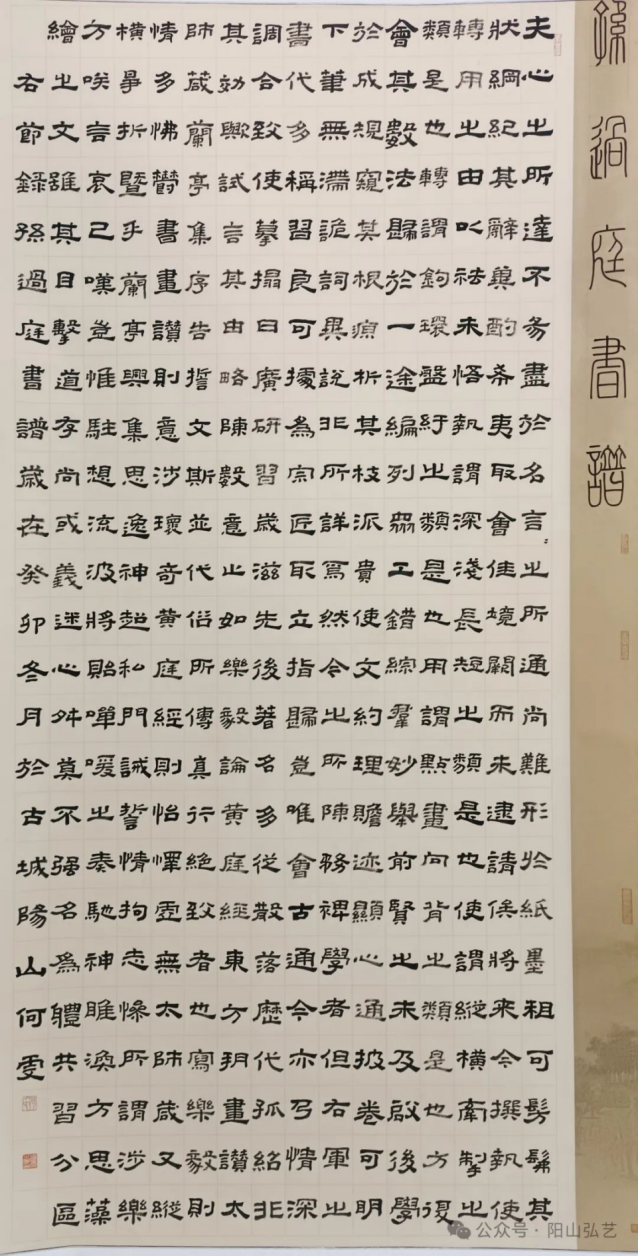 孫過庭書譜
夫心之所達不易盡於名言〻之所通尚難形於紙墨粗可髣髴其
狀綱紀其辭冀酌希夷取會佳境闕而未逮請俟將來今撰執使
轉用之由以祛未悟執謂深淺長短之類是也使謂縱橫牽掣之
類是也轉謂鉤環盤紆之類是也用謂點畫向背之類是也方復
會其數法歸於一途編列眾工錯綜羣妙舉前賢之未及啟後學
於成規窺其根源析其枝派貴使文約理贍迹顯心通披卷可明
下筆無滯詭詞異說非所詳焉然今之所陳務裨學者但右軍之
書代多稱習良可據為宗匠取立指歸豈唯會古通今亦乃情深
調合致使摹搨日廣研習歲滋先後著名多從散落歷代孤紹非
其効歟試言其由略陳數意止如樂毅論黃庭經東方朔畫讚太
師箴蘭亭集序告誓文斯並代俗所傳真行絕致者也寫樂毅則
情多怫鬱書畫讚則意涉瓌奇黃庭經則怡懌虛無太師箴又縱
橫爭折暨乎蘭亭興集思逸神超私門誡誓情拘志慘所謂涉樂
方笑言哀已嘆豈惟駐想流波將貽嘽喛之奏馳神睢渙方思藻
繪之文雖其目擊道存尚或義迷心舛莫不强名為體共習分區
右節錄孫過庭書譜歲在癸卯冬月於古城陽山何雯
公众号·阳山弘艺